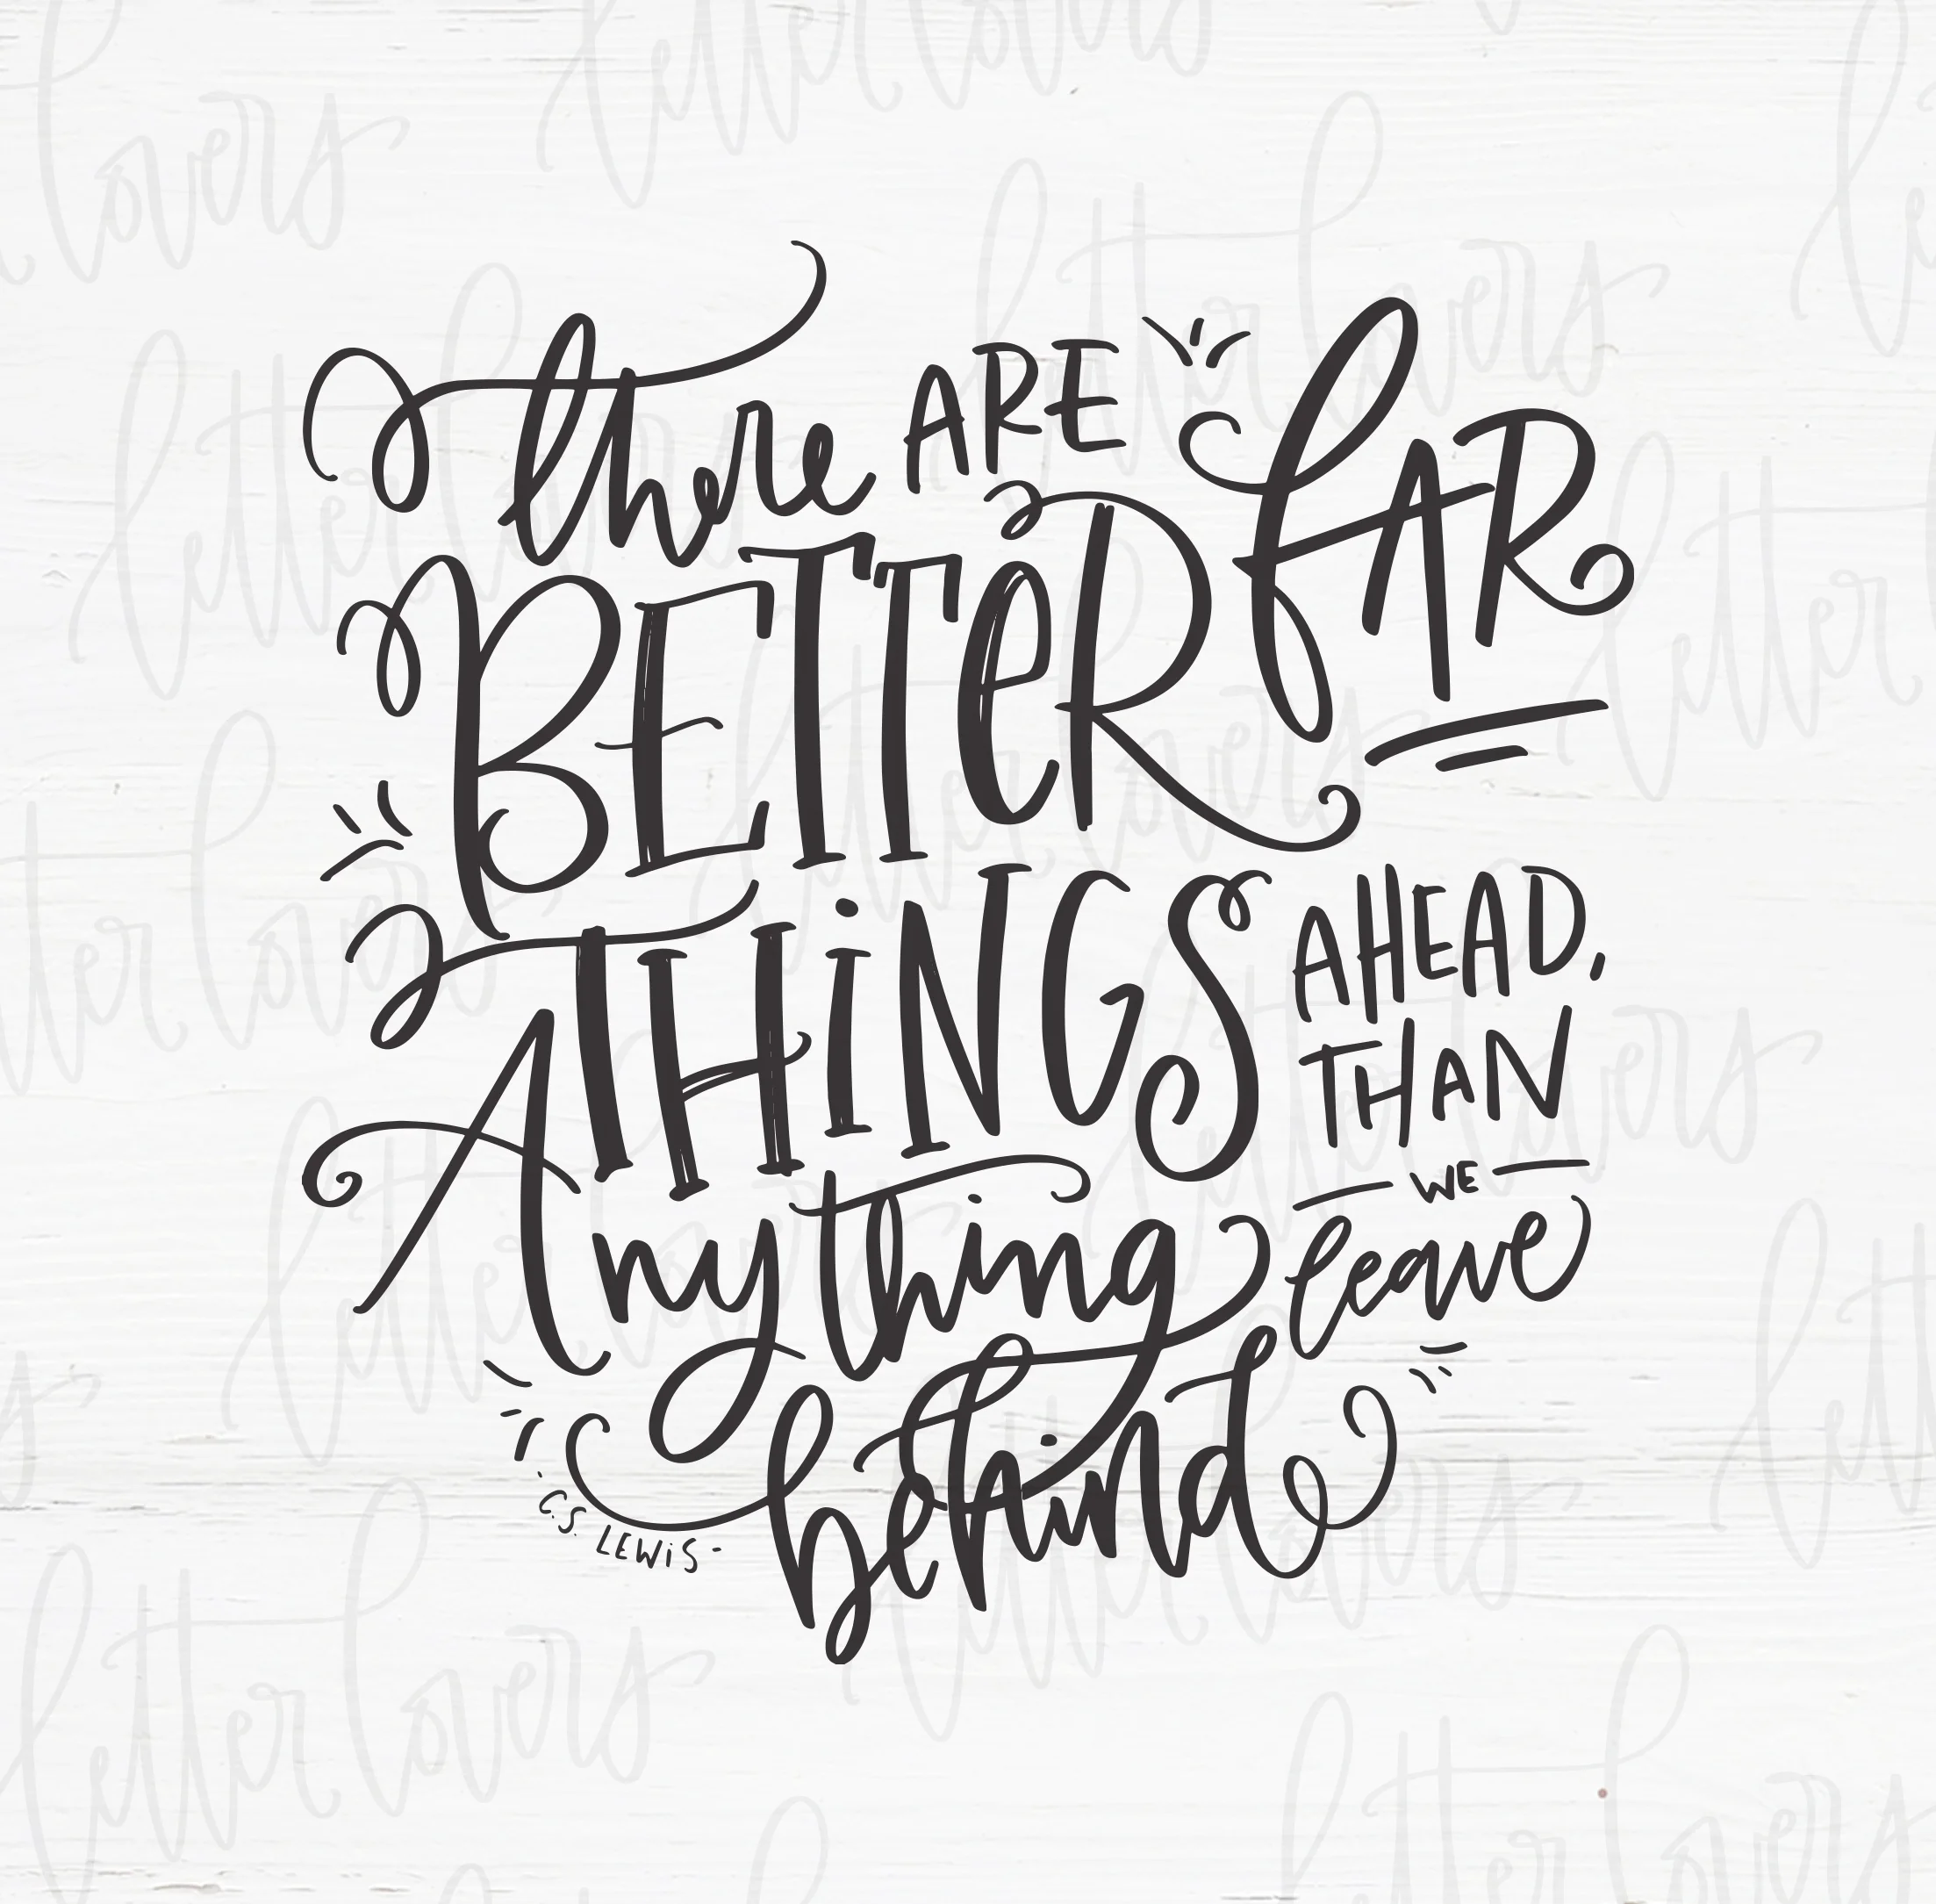 there ARE fAR
BETTeR
THiNGS AHEAD,
THAN
WE
Anything leave
behind
- C.S. LEWiS -
letter lovers